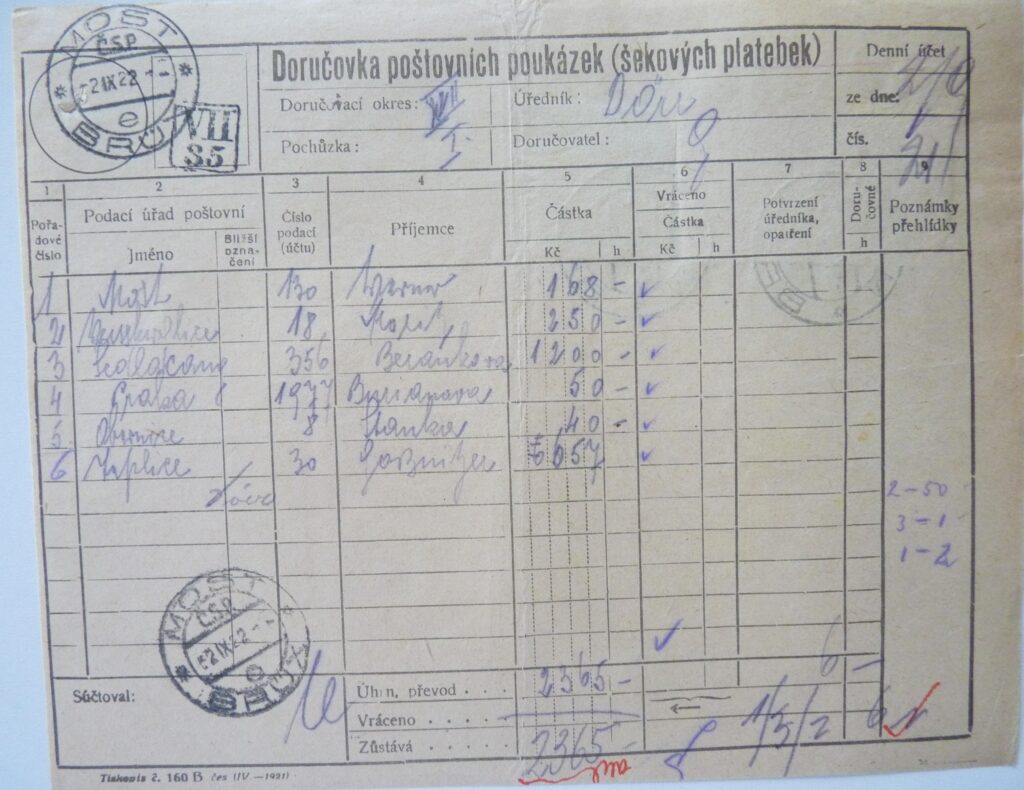 MOST
ČSP
2 IX 22
e
BRÜX
VII
35
Doručovka poštovních poukázek (šekových platebek)
Denní účet
Doručovací okres: VII
Úředník:
ze dne: 2/9
Pochůzka: I.
Doručovatel:
čís. 21
1 2 3 4 5 6 7 8 9
Pořadové číslo
Podací úřad poštovní
Jméno
Bližší označení
Číslo podací (účtu)
Příjemce
Částka
Kč h
Vráceno
Částka
Kč h
Potvrzení úředníka, opatření
Doručovné
h
Poznámky přehlídky
1 Most 130 Werner 168 -
2 18 250 -
3 356 Beránkova 1200 -
4 Praha 1977 50 -
5 Obernice 8 Stanka 40 -
6 Teplice 30 657
2 - 50
3 - 1
1 - 2
MOST
ČSP
2 IX 22
e
BRÜX
6 -
Súčtoval:
Úhrn, převod . . . . 2365 -
Vráceno . . . . .
1/3/2 6
Zůstává . . . . . 2365 -
Tiskopis č. 160 B čes (IV.—1921)